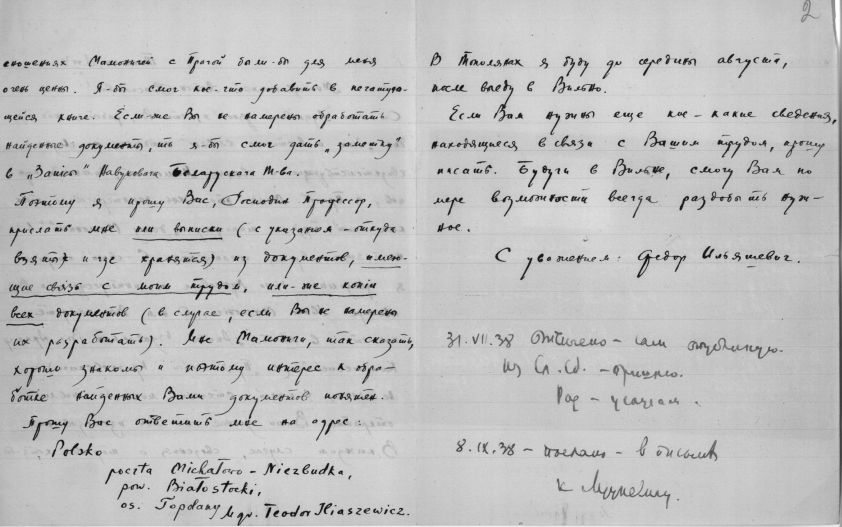 сношениях Мамоничей с Прагой были-бы для меня
очень ценны. Я-бы смог кое-что добавить в печатаю-
щейся книге. Если-же Вы не намерены обработать
найденные документы, то я-бы смог дать „заметку"
в „Запісы Навуковага Беларускага Т-ва.
Поэтому я прошу Вас, Господин Профессор,
прислать мне или выписки (с указанием-откуда
взяты и где хранятся) из документов, имею-
щие связь с моим трудом, или-же копии
всех документов (в случае, если Вы не намерены
их разработать). Мне Мамоничи, так сказать,
хорошо знакомы и поэтому интерес к обра-
ботке найденных Вами документов понятен.
Прошу Вас ответить мне на адрес:
Polsko
poczta Michałowo - Niezbudka,
pow. Białostocki,
os. Topolany Mgr. Teodor Iliaszewicz.
2
В Тополянах я буду до середины августа,
после выеду в Вильно.
Если Вам нужны еще кое-какие сведения,
находящиеся в связи с Вашим трудом, прошу
писать. Будучи в Вильне, смогу Вам по
мере возможности всегда раздобыть нуж-
ное.
С уважением: Федор Ильяшевич.
31.VII.38 Отвечено - сам опубликую.
Из Сл. Сб. - пришлю.
8.IX.38 - послано - в письме
к